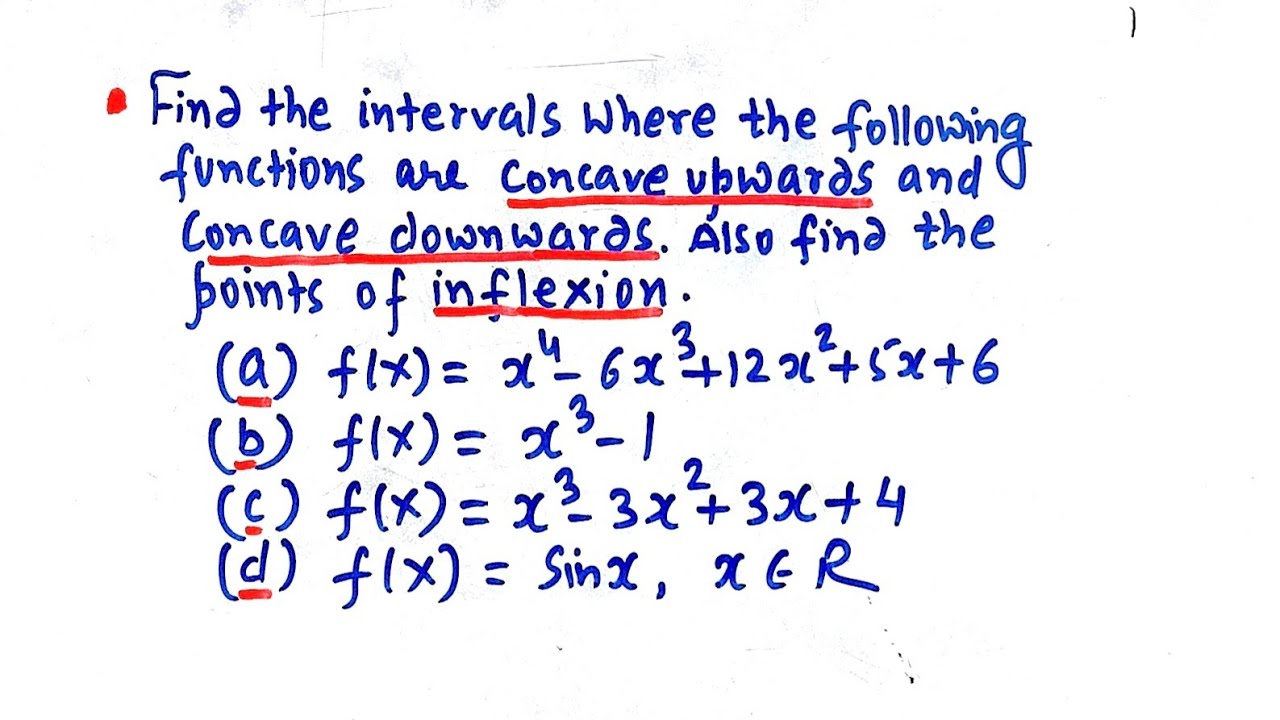 1
• Find the intervals where the following
functions are concave upwards and
concave downwards. Also find the
points of inflexion.
(a) f(x) = x⁴ - 6x³ + 12x² + 5x + 6
(b) f(x) = x³ - 1
(c) f(x) = x³ - 3x² + 3x + 4
(d) f(x) = Sinx, x ∈ R